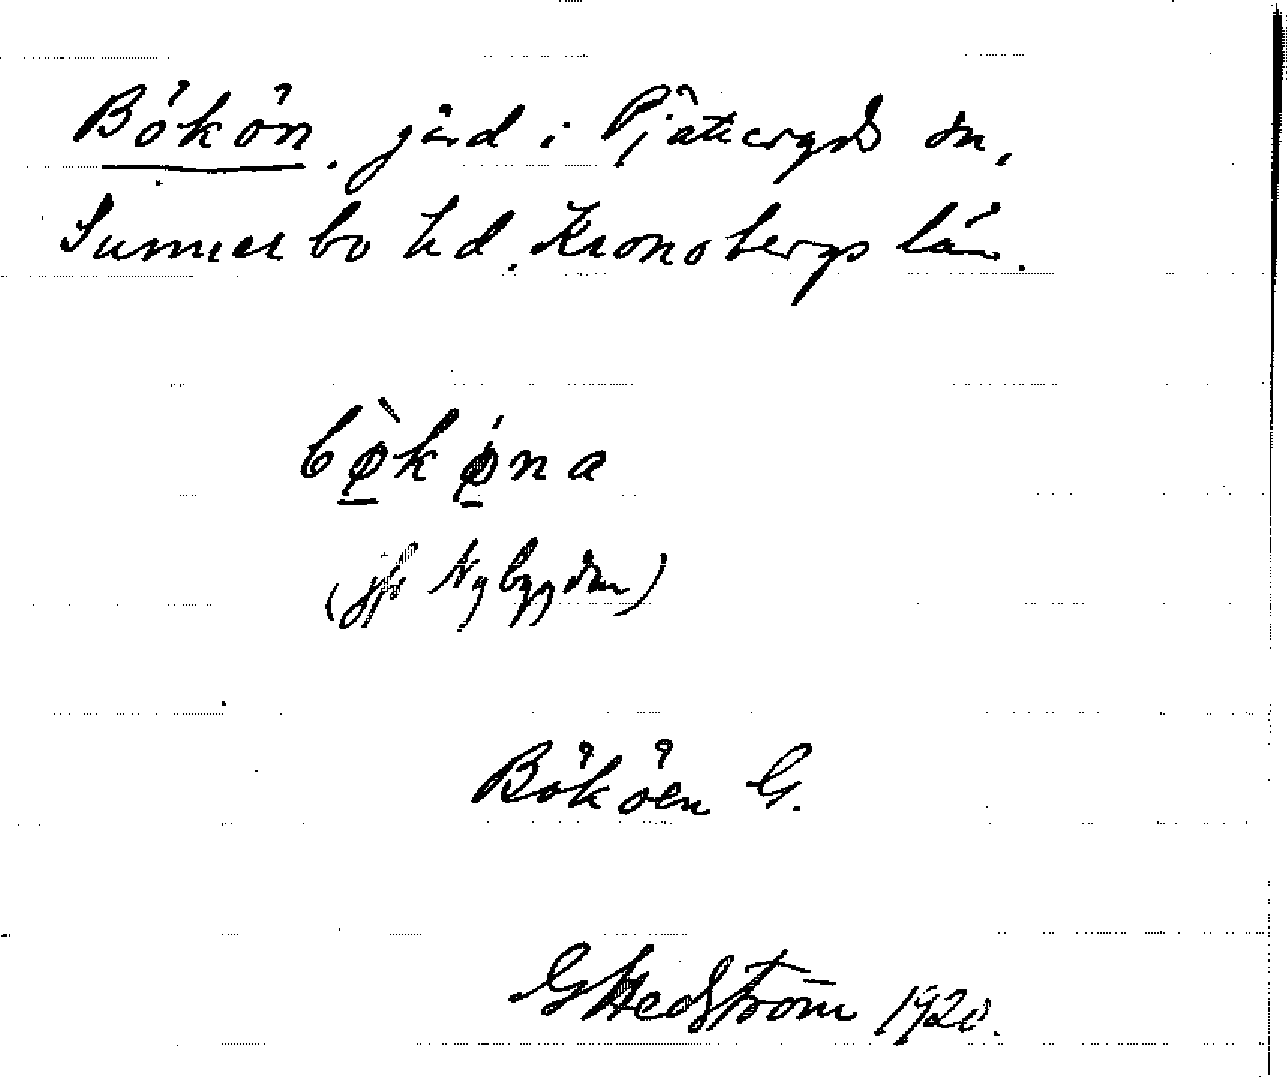 Bökön. gård i Pjätteryds sn,
Sunnerbo hd. Kronobergs län.
bø̀kǿna
(jfr Nybygden)
Bököen G.
G Hedström 1920.